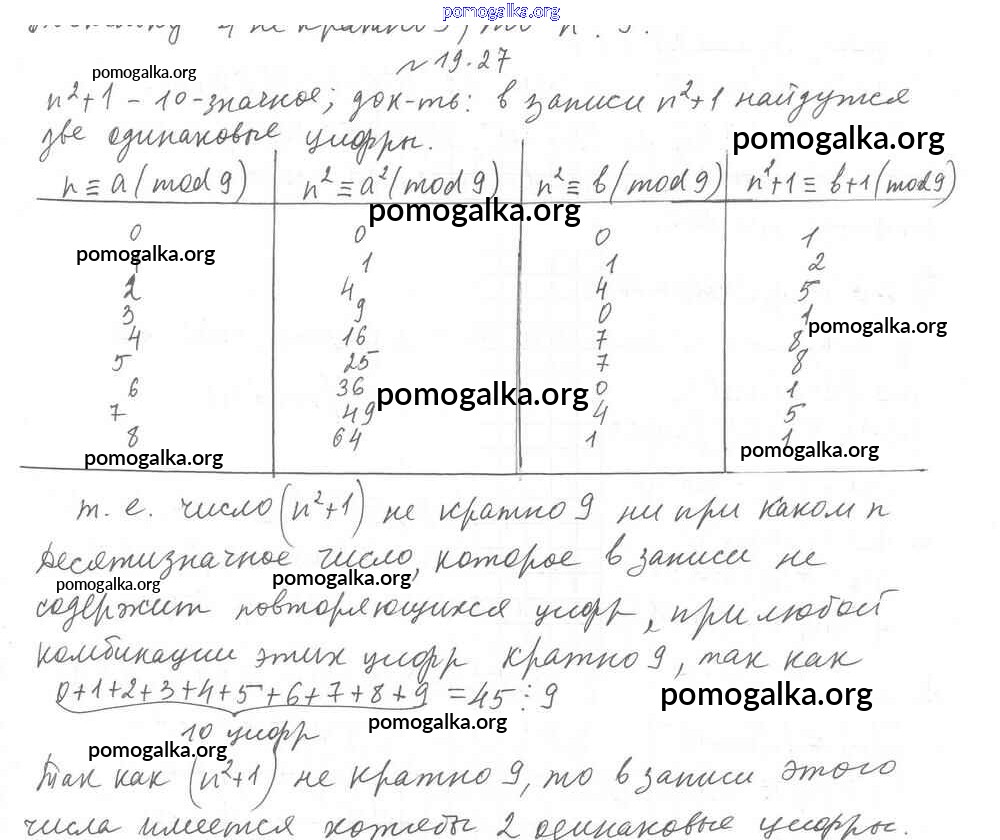 pomogalka.org
4 не кратно 9, то n ⋮ 3.
№ 19.27
pomogalka.org
n²+1 – 10-значное; док-ть: в записи n²+1 найдутся
две одинаковые цифры.
pomogalka.org
n ≡ a (mod 9) n² ≡ a² (mod 9) n² ≡ b (mod 9) n²+1 ≡ b+1 (mod 9)
pomogalka.org
0 0 0 1
pomogalka.org
1 1 1 2
2 4 4 5
3 9 0 1
pomogalka.org
4 16 7 8
5 25 7 8
6 36 0 1
pomogalka.org
7 49 4 5
8 64 1 1
pomogalka.org
pomogalka.org
т. е. число (n²+1) не кратно 9 ни при каком n
Десятизначное число, которое в записи не
pomogalka.org
pomogalka.org
содержит повторяющихся цифр, при любой
комбинации этих цифр кратно 9, так как
0+1+2+3+4+5+6+7+8+9 = 45 ⋮ 9
pomogalka.org
pomogalka.org
10 цифр
pomogalka.org
Так как (n²+1) не кратно 9, то в записи этого
числа имеется хотябы 2 одинаковые цифры.